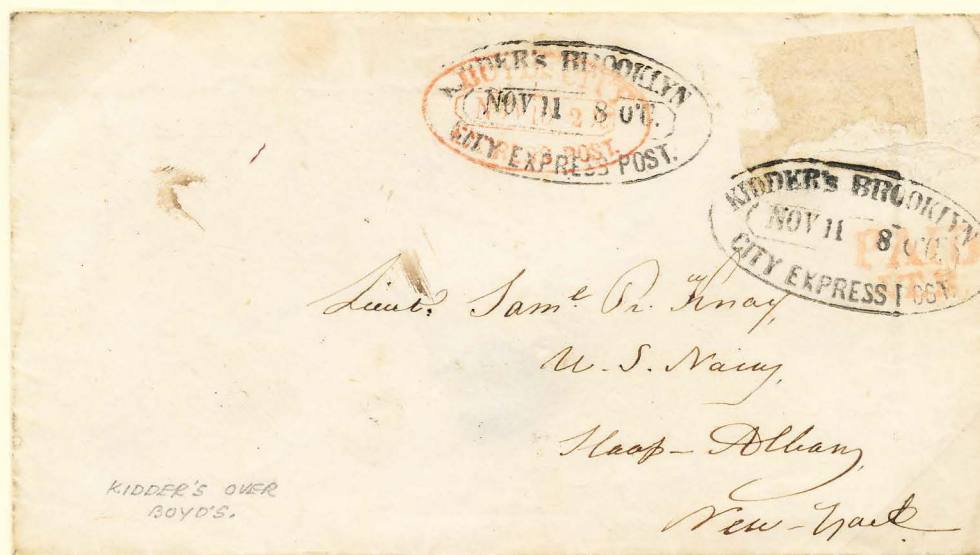 KIDDER's BROOKLYN
NOV 11 8 O'C.
CITY EXPRESS POST.
BOYD'S CITY
NOV 2
EXPRESS POST.
KIDDER's BROOKLYN
NOV 11 8 O'C.
CITY EXPRESS POST.
PAID
Lieut. Saml Pr.
U. S. Navy,
Sloop - Albany,
New-York
KIDDER'S OVER
BOYD'S.